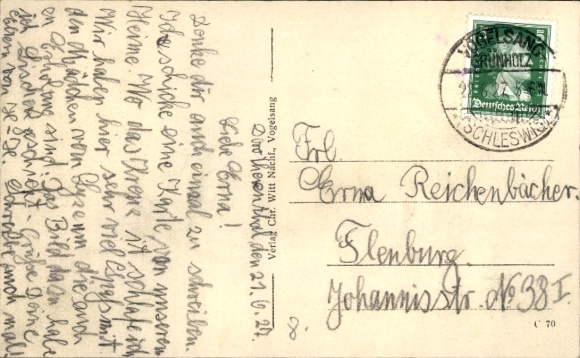 den 21. 6. 27.
Liebe Erna!
Denke dir auch einmal zu schreiben.
Ich schicke eine Karte von unserem
Heime. Wo das Kreuz ist schlafe ich
Wir haben hier sehr viel Spaß mit
den Mädchen vom Lyzeum die auch
Das Bild habe
ich
Grüße Deine
Eltern von
Schreibe auch mal
Verlag Chr. Witt Nachf., Vogelsang
VOGELSANG
GRÜNHOLZ
(SCHLESWIG)
Deutsches Reich
Frl.
Erna Reichenbächer.
Flenburg.
Johannisstr № 38 I.
C 70